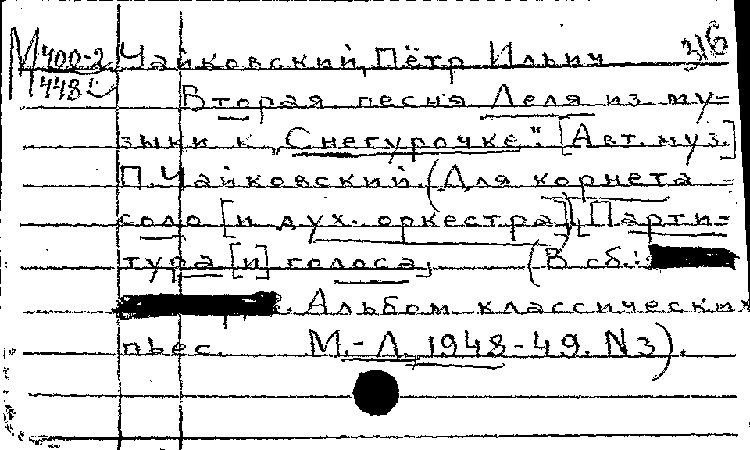 М 400-2 Чайковский, Пётр Ильич
448 Вторая песня Леля из му-
зыки к „Снегурочке". [Авт. муз.]
П. Чайковский. (Для корнета
соло [и дух. оркестра]). [Парти-
тура [и] голоса; (В сб.:
. Альбом классических
пьес. М.-Л. 1948-49. N3).